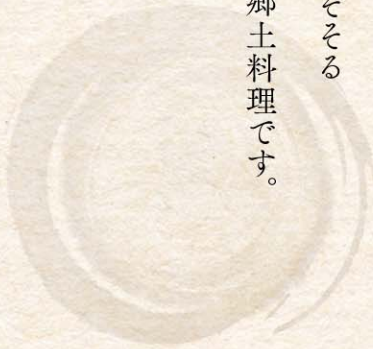 そそる
郷土料理です。